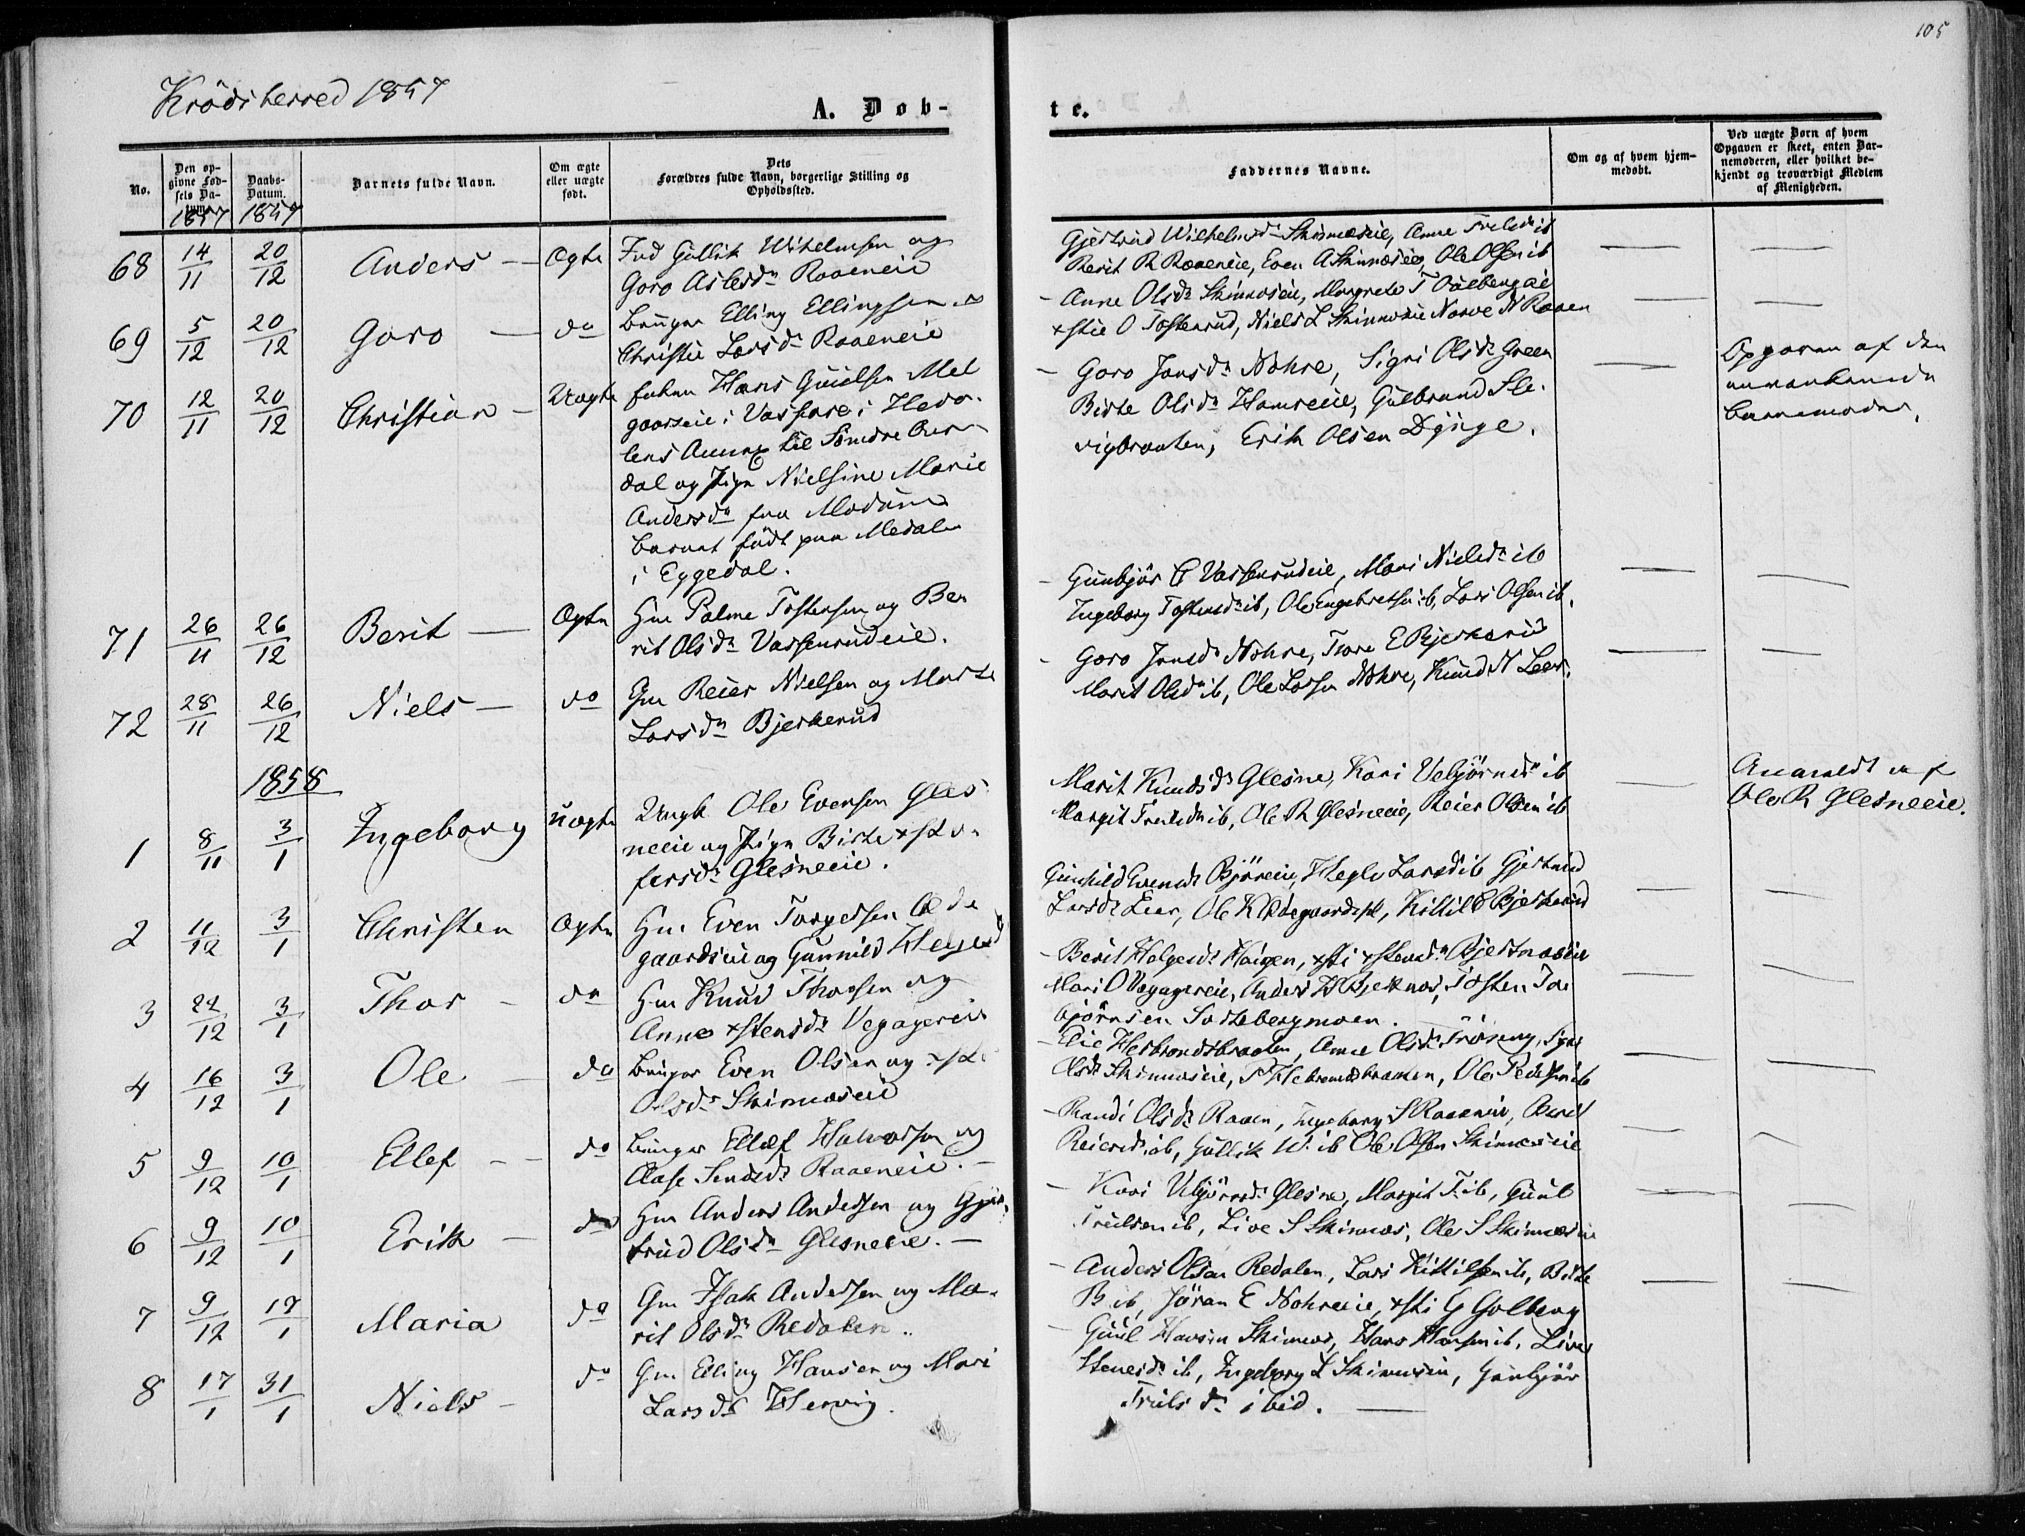 105
Krödsherred 1857
A. Døb-
te.
No.
Den op-
givne Fød-
sels Da-
tum.
1857
Daabs-
Datum.
1857
Barnets fulde Navn.
Om ægte
eller uægte
født.
Dets
Forældres fulde Navn, borgerlige Stilling og
Opholdssted.
Faddernes Navne.
Om og af hvem hjem-
medøbt.
Ved uægte Børn af hvem
Opgaven er skeet, enten Bar-
nemoderen, eller hvilket be-
kjendt og troværdigt Medlem
af Menigheden.
68 14/11 20/12 Anders — Ægte
Gullik Wilhelmsen og
Goro Aslesdr Raaeneie
Gjertrud Wilhelmsdr Skinneseie, Anne
Berit R Raaeneie, Even A Skinneseie, Ole Olsen ib
69 5/12 20/12 Goro — do
Bruger Elling Ellingsen og
Christie Larsdr Raaeneie
Anne Olsdr Skinneseie, Margrete T
xstie O Tostenrud, Niels L Skinneseie Narve N Raaen
70 12/11 20/12 Christian — Uægte
Hans Gulelsen Mel
gaardeie i Vasfaret i Heda-
lens Annex til Søndre Aur-
dal og Pige Nielsine Marie
Andersdr fra Modum
Barnet født paa Medalen
i Eggedal.
Goro Jonsdr Nohre, Sigri Olsdr Green
Birte Olsdr Hamreeie, Gulbrand Sle-
vigbraaten, Erik Olsen Dynge.
Opgaven af den
Barnemoder.
71 26/11 26/12 Berit — Ægte
Gm Palme Tostensen og Be-
rit Olsdr Vassenrudeie.
Gunbjør E Vassenrudeie, Mari Nielsdr ib
Ingeborg Tostensdr ib, Ole Engebretsen ib, Lars Olsen ib.
72 28/11 26/12 Niels — do
Gm Reier Nielsen og Marte
Larsdr Bjerkerud
Goro Jonsdr Nohre, Thore E Bjerkerud
Marit Olsdr ib, Ole Larsen Nohre, Knud N Leer.
1858
1 8/11 3/1 Ingeborg uægte
Ungk Ole Evensen Gles-
neeie og Pige Birte xsto-
fersdr Glesneeie.
Marit Knudsdr Glesne, Kari Vebjørnsdr ib
Margit Trulsdr ib, Ole R Glesneeie, Reier Olsen ib
Anmeldt af
Ole R Glesneeie.
2 11/12 3/1 Christen Ægte
Gm Even Torgersen Øde-
gaardseie og Gunnild Helgesdr
Gunhild Evensdr Bjøreeie, Helge Larsdr ib Gjertrud
Larsdr Leer, Ole K Ødegaardseie, Kittil E Bjerkerud
3 22/12 3/1 Thor — do
Gm Knud Thorsen og
Anne xstensdr Vegagereie
Berit Helgesdr Haugen, xsti xstensdr Bjertnæseie
Mari O Vegagereie, Anders H Bjertnæs, Tosten Tor-
bjørnsen Sostebergmoen.
4 16/12 3/1 Ole — do
Bruger Even Olsen og xsti
Olsdr Skinneseie
Elie Herbrandsbraaten, Anne Olsdr
Olsdr Skinneseie, P Hebrandsbraaten, Ole Pedersen ib
5 9/12 10/1 Ellef — do
Bruger Ellef Halvorsen og
Raaeneie.
Randi Olsdr Raaen, Ingeborg S Raaeneie, Berit
Reiersdr ib, Gullik W. ib Ole Olsen Skinneseie
6 9/12 10/1 Erik — do
Gm Anders Andersen og Gjer-
trud Olsdr Glesneeie. —
Kari Vebjørnsdr Glesne, Margit T. ib, Guul
Trulsen ib, Live S Skinnes, Ole S Skinneseie
7 9/12 17/1 Maria do
Gm Isak Andersen og Ma-
rit Olsdr Redalen.
Anders Olsen Redalen, Lars Kittilsen ib, Birte
B ib, Jøran E Nohreeie, xsti G Golberg
8 17/1 31/1 Niels — do
Gm Elling Hansen og Mari
Larsdr Hervig.
Guul Hansen Skinnes, Hans Hansen ib, Live
Steensdr ib, Ingeborg L Skinneseie, Gunbjør
Trulsdr ibid. —